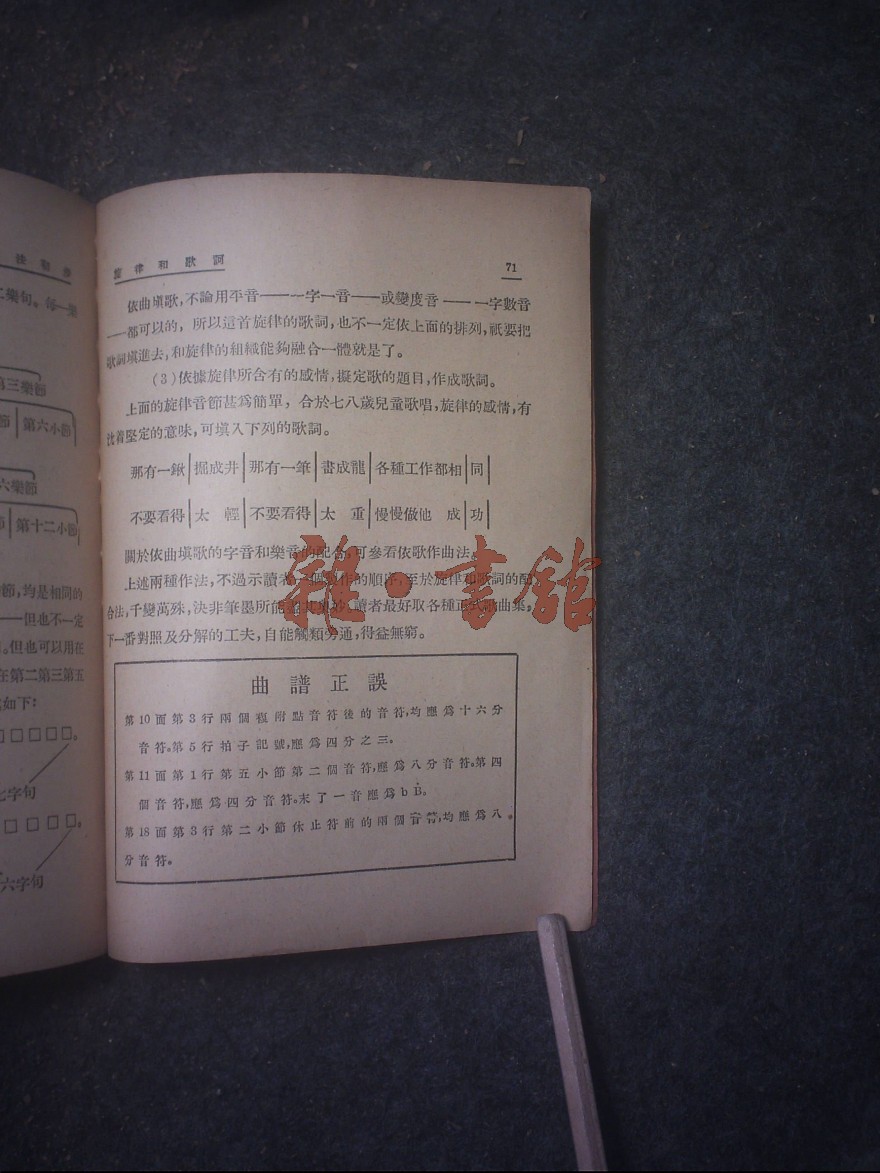 旋律和歌詞
71
依曲填歌,不論用平音——一字一音——或變度音——一字數音
——都可以的,所以這首旋律的歌詞,也不一定依上面的排列,祇要把
歌詞填進去,和旋律的組織能夠融合一體就是了。
(3)依據旋律所含有的感情,擬定歌的題目,作成歌詞。
上面的旋律音節甚爲簡單,合於七八歲兒童歌唱,旋律的感情,有
沈着堅定的意味,可填入下列的歌詞。
那有一鍬|掘成井|那有一筆|書成龍|各種工作都相|同|
不要看得|太 輕|不要看得|太 重|慢慢做他 成|功|
關於依曲填歌的字音和樂音的配合,可參看依歌作曲法。
上述兩種作法,不過示讀者一個製作的順序,至於旋律和歌詞的配
合法,千變萬殊,決非筆墨所能盡其奧妙,讀者最好取各種正式歌曲集,
下一番對照及分解的工夫,自能觸類旁通,得益無窮。
曲譜正誤
第10面第3行兩個複附點音符後的音符,均應爲十六分
音符。第5行拍子記號,應爲四分之三。
第11面第1行第五小節第二個音符,應爲八分音符。第四
個音符,應爲四分音符。末了一音應爲bB。
第18面第3行第二小節休止符前的兩個音符,均應爲八
分音符。
二樂句。每一樂
第三樂節
節|第六小節
六樂節
節|第十二小節
節,均是相同的
——但也不一定
。但也可以用在
在第二第三第五
如下:
□□□□□。
七字句
□□□□。
六字句
雜·書館